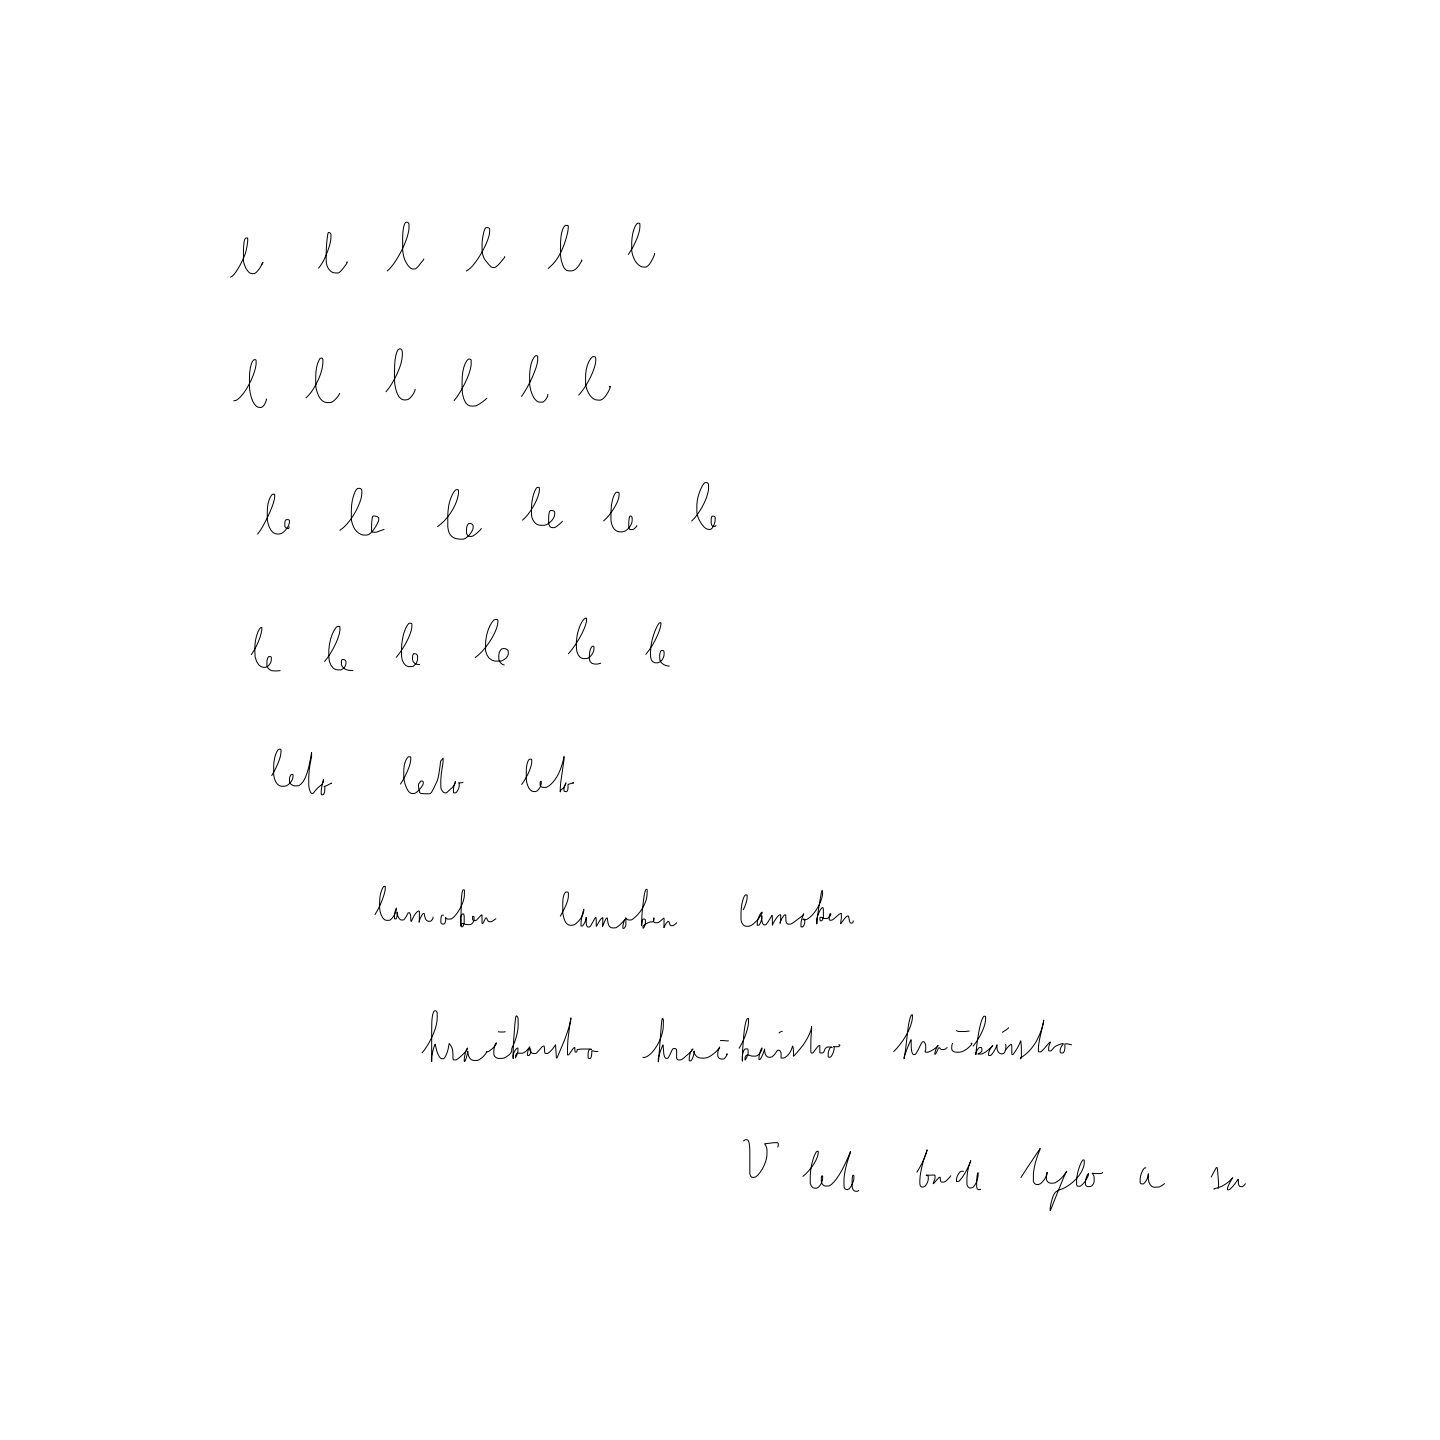 l l l l l l
l l l l l l
le le le le le le
le le le le le le
leto leto leto
lamoken lamoken lamoken
hračkarstvo hračkárstvo hračkárstvo
V lete bude teplo a sa